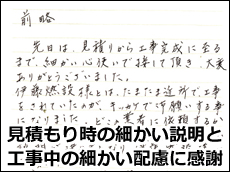 前略
先日は、見積りから工事完成に至る
まで、細かい心使いで接して頂き大変
ありがとうございました。
伊藤燃設様とは、たまたま近所で工事
をされていたのが、きっかけで御願いする事
になりました。どこの業者に依頼するか
見積もり時の細かい説明と
工事中の細かい配慮に感謝